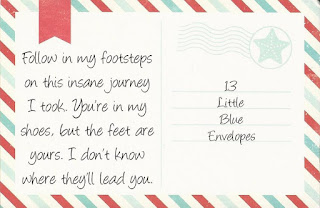 Follow in my footsteps
on this insane journey
I took. You're in my
shoes, but the feet are
yours. I don't know
where they'll lead you.
13
Little
Blue
Envelopes